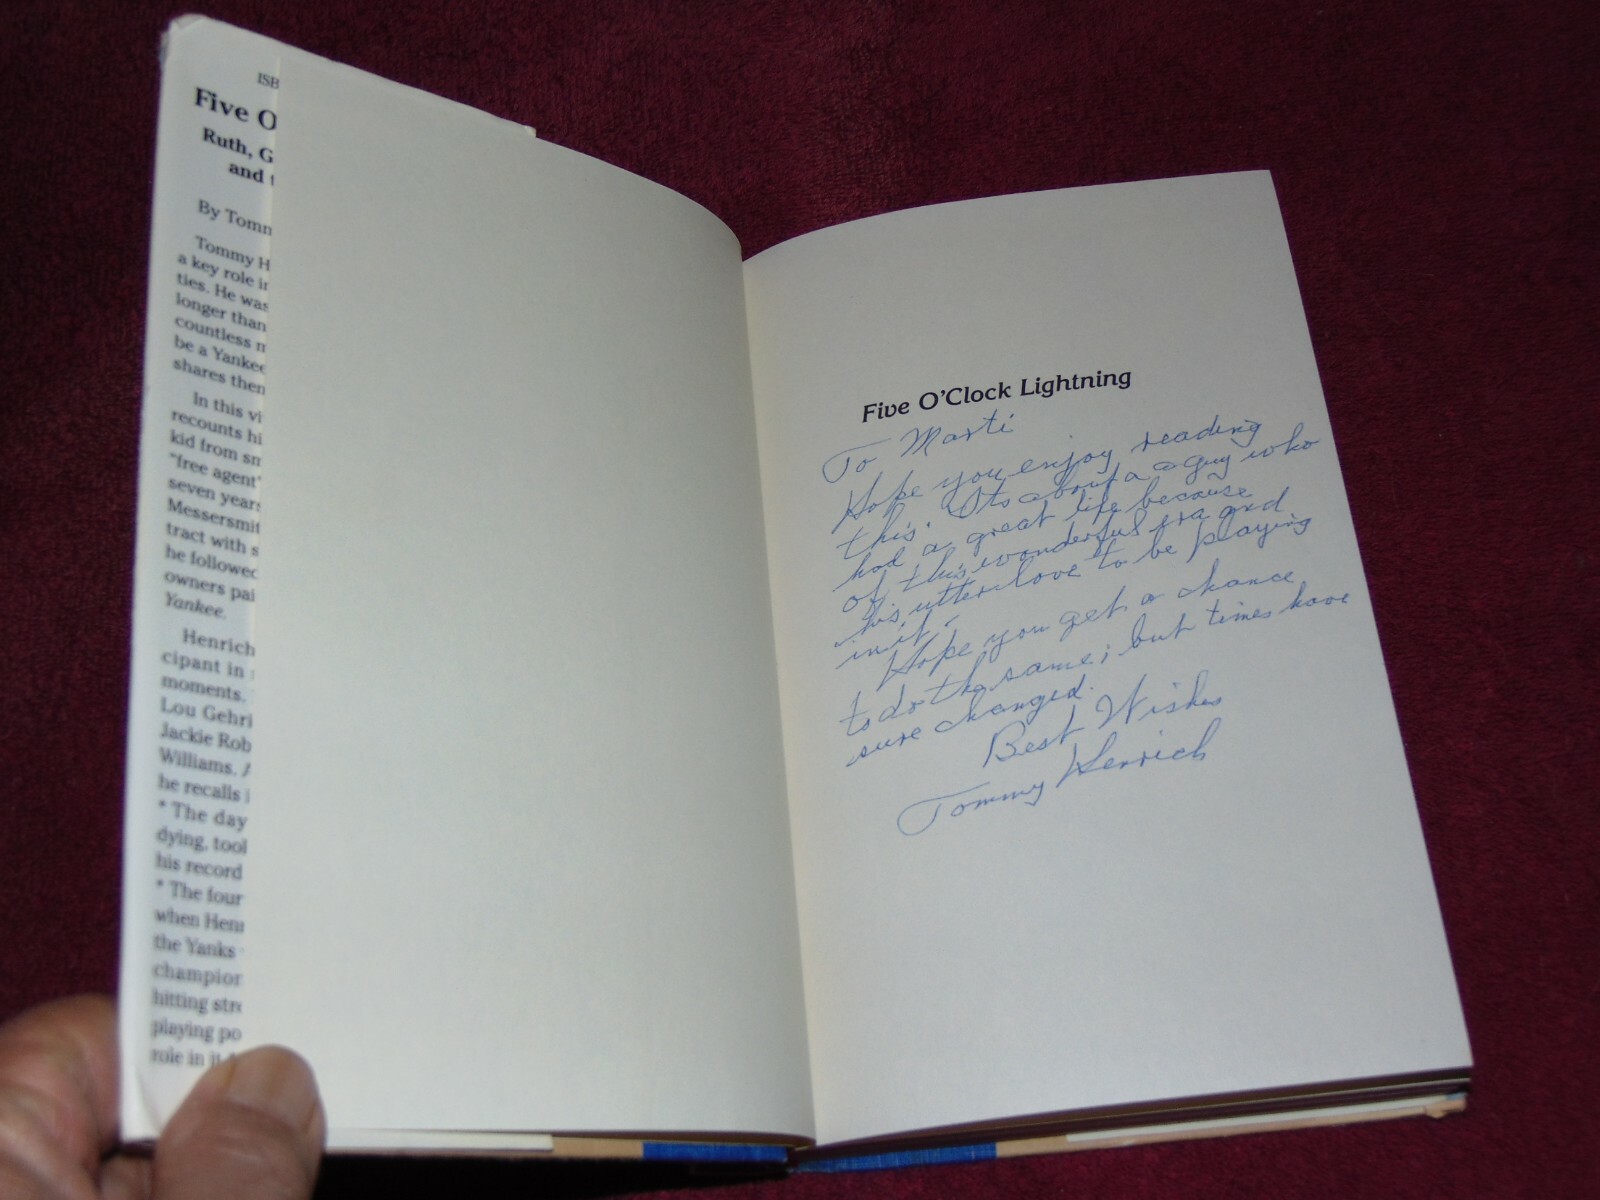 ISB
Five O
Ruth, G
and t
By Tomm
Tommy H
a key role in
ties. He was
longer than
countless m
be a Yankee
shares then
In this vi
recounts hi
kid from sm
"free agent"
seven years
Messersmit
tract with s
he followed
owners pai
Yankee.
Henrich
cipant in s
moments.
Lou Gehri
Jackie Rob
Williams. A
he recalls i
* The day
dying, tool
his record
* The four
when Henr
the Yanks
champion
hitting stre
playing po
role in it
Five O'Clock Lightning
To Marti
Hope you enjoy reading
this. Its about a guy who
had a great life because
of this wonderful era and
his utter love to be playing
in it.
Hope you get a chance
to do the same; but times have
sure changed.
Best Wishes
Tommy Henrich